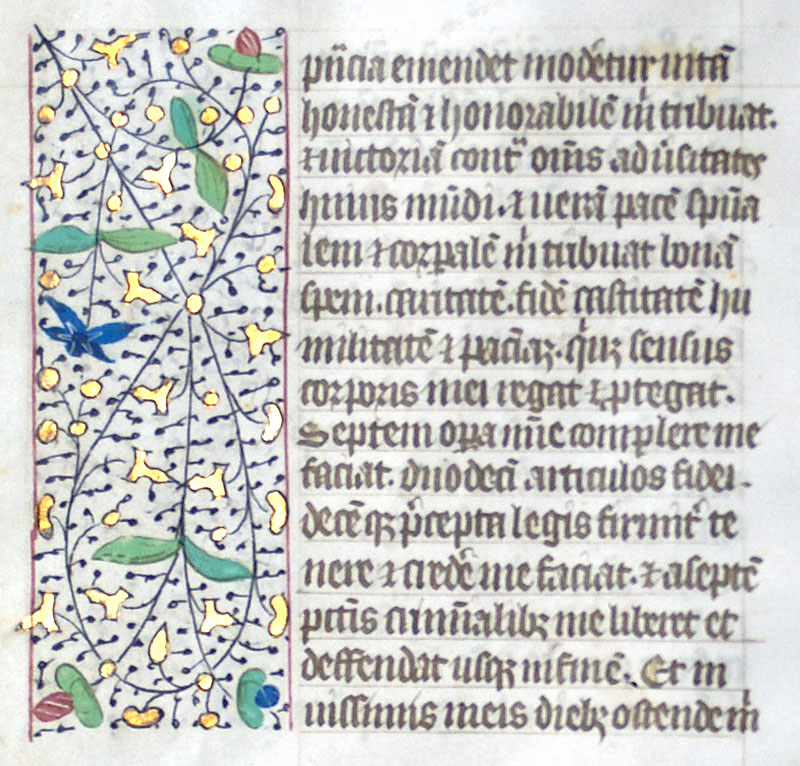 pñcia emendet modẽtur vitã
honestã ⁊ honorabilẽ mͥ tribuat.
⁊ uictoriã cont̃ om̃s adũsitates
huius mũdi. ⁊ uerã pacẽ spũa
lem ⁊ corꝑalẽ mͥ tribuat bonã
spem. caritatẽ. fidẽ castitatẽ hu
militatẽ ⁊ paciãꝫ. qͥnqꝫ sensus
corporis mei regat ⁊ ꝓtegat.
Septem oꝑa mĩe complere me
faciat. duodecĩ articulos fidei.
decẽqꝫ p̃cepta legis firmit̃ te
nere ⁊ credẽ me faciat. ⁊ a septẽ
pctĩs crimĩalibꝫ me liberet et
deffendat usqꝫ in finẽ. Et in
uissimis meis diebꝫ ostende mͥ